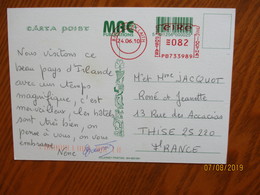 CARTA POIST
MBC
24.06.10
EIRE
082
PB733989
Nous visitons ce
beau pays d'Irlande
avec un temps
magnifique, c'est
merveilleux. les hôtels
sont très bien, on
pense à vous, on vous
embrasse.
Nonc
Mr et Mme JACQUOT
René et Jeannette
13 Rue des Accacias
THISE 25.220
FRANCE
07/08/2019